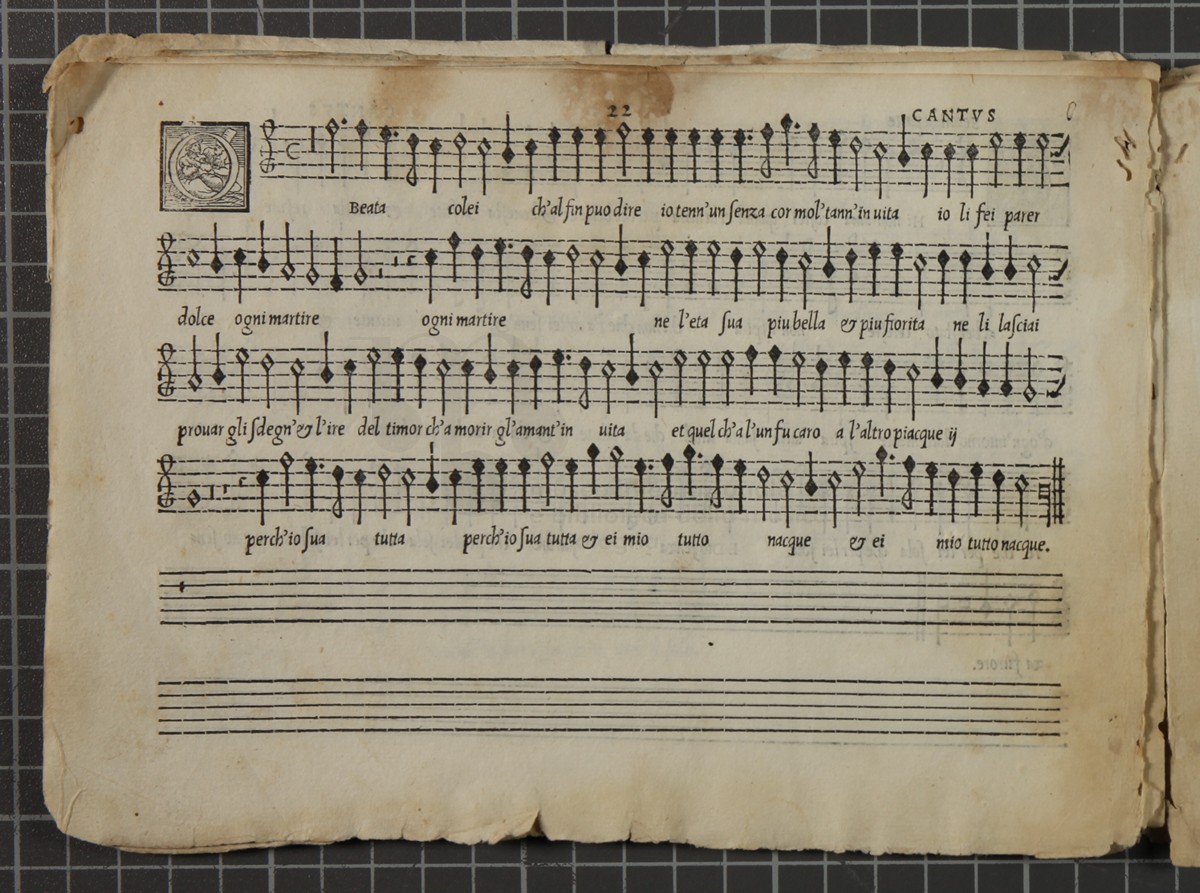 22 CANTVS
O Beata colei ch'al fin puo dire io tenn'un ſenza cor mol'tann'in uita io li fei parer
dolce ogni martire ogni martire ne l'eta ſua piu bella & piu fiorita ne li laſciai
prouar gli ſdegn'& l'ire del timor ch'a morir gl'amant'in uita et quel ch'a l'un fu caro a l'altro piacque ij
perch'io ſua tutta perch'io ſua tutta & ei mio tutto nacque & ei mio tutto nacque.